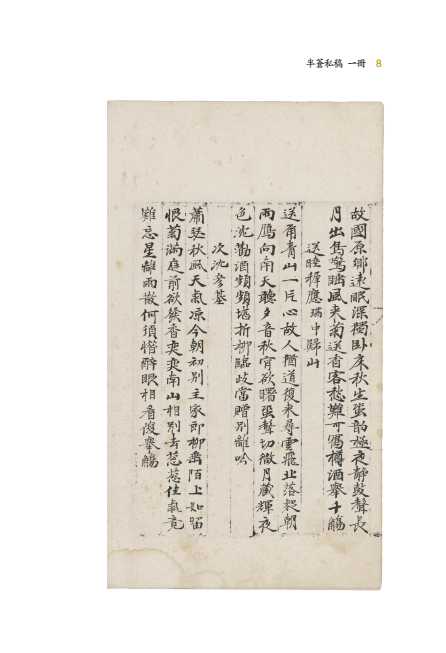 半蒼私稿 一冊 8
故國原鄉遠眠深獨臥床秋生蛩韵極夜靜鼓聲長
月出雋鴦瞞風來菊送香客愁難可寫樽酒舉十觴
送睦樺應瑞中歸山
送甭青山一片心故人酒道復來尋雲飛北落起朝
雨鴈向南天聽夕音秋宵欲曙蛩聲切微月藏輝夜
色沈勸酒頻頻堪折柳臨岐當贈別離吟
次沈參墓
蕭瑟秋風天氣凉今朝初別主家郎柳垂陌上知留
恨菊滿庭前欲發香奕奕南山相別去悠悠住氣竟
難忘星離雨散何須惜醉眼相看復舉觴